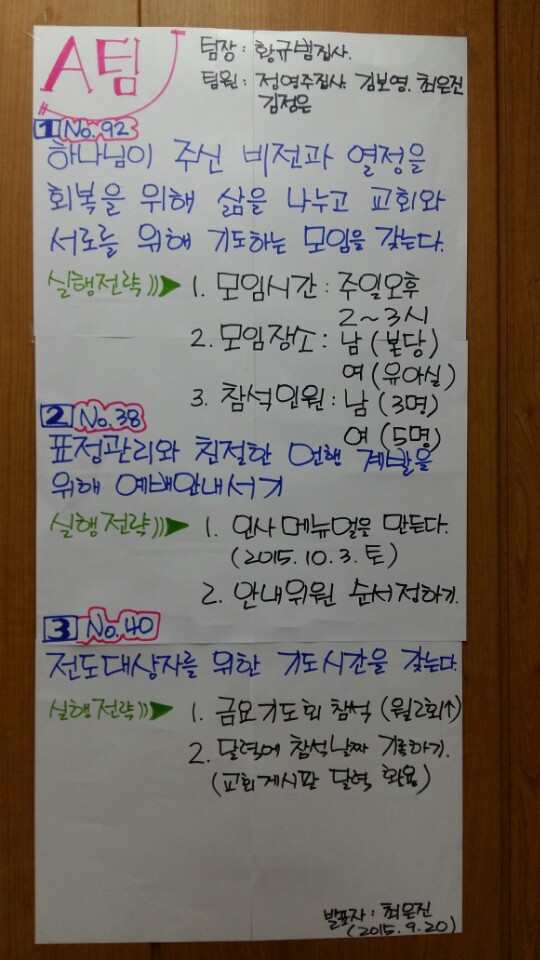 A팀
팀장 : 황규범집사.
팀원 : 정영주집사. 김보영. 최은진
김정은
1 No.92
하나님이 주신 비전과 열정을
회복을 위해 삶을 나누고 교회와
서로를 위해 기도하는 모임을 갖는다.
실행전략)) ▶ 1. 모임시간 : 주일오후
2~3시
2. 모임장소 : 남 (본당)
여 (유아실)
3. 참석인원 : 남 (3명)
여 (5명)
2 No.38
표정관리와 친절한 언행 계발을
위해 예배안내서기
실행전략)) ▶ 1. 인사 메뉴얼을 만든다.
(2015. 10. 3. 토)
2. 안내위원 순서정하기.
3 No.40
전도대상자를 위한 기도시간을 갖는다.
실행전략)) ▶ 1. 금요기도회 참석 (월2회↑)
2. 달력에 참석날짜 기록하기.
(교회게시판 달력 활용)
발표자 : 최은진
(2015. 9. 20)